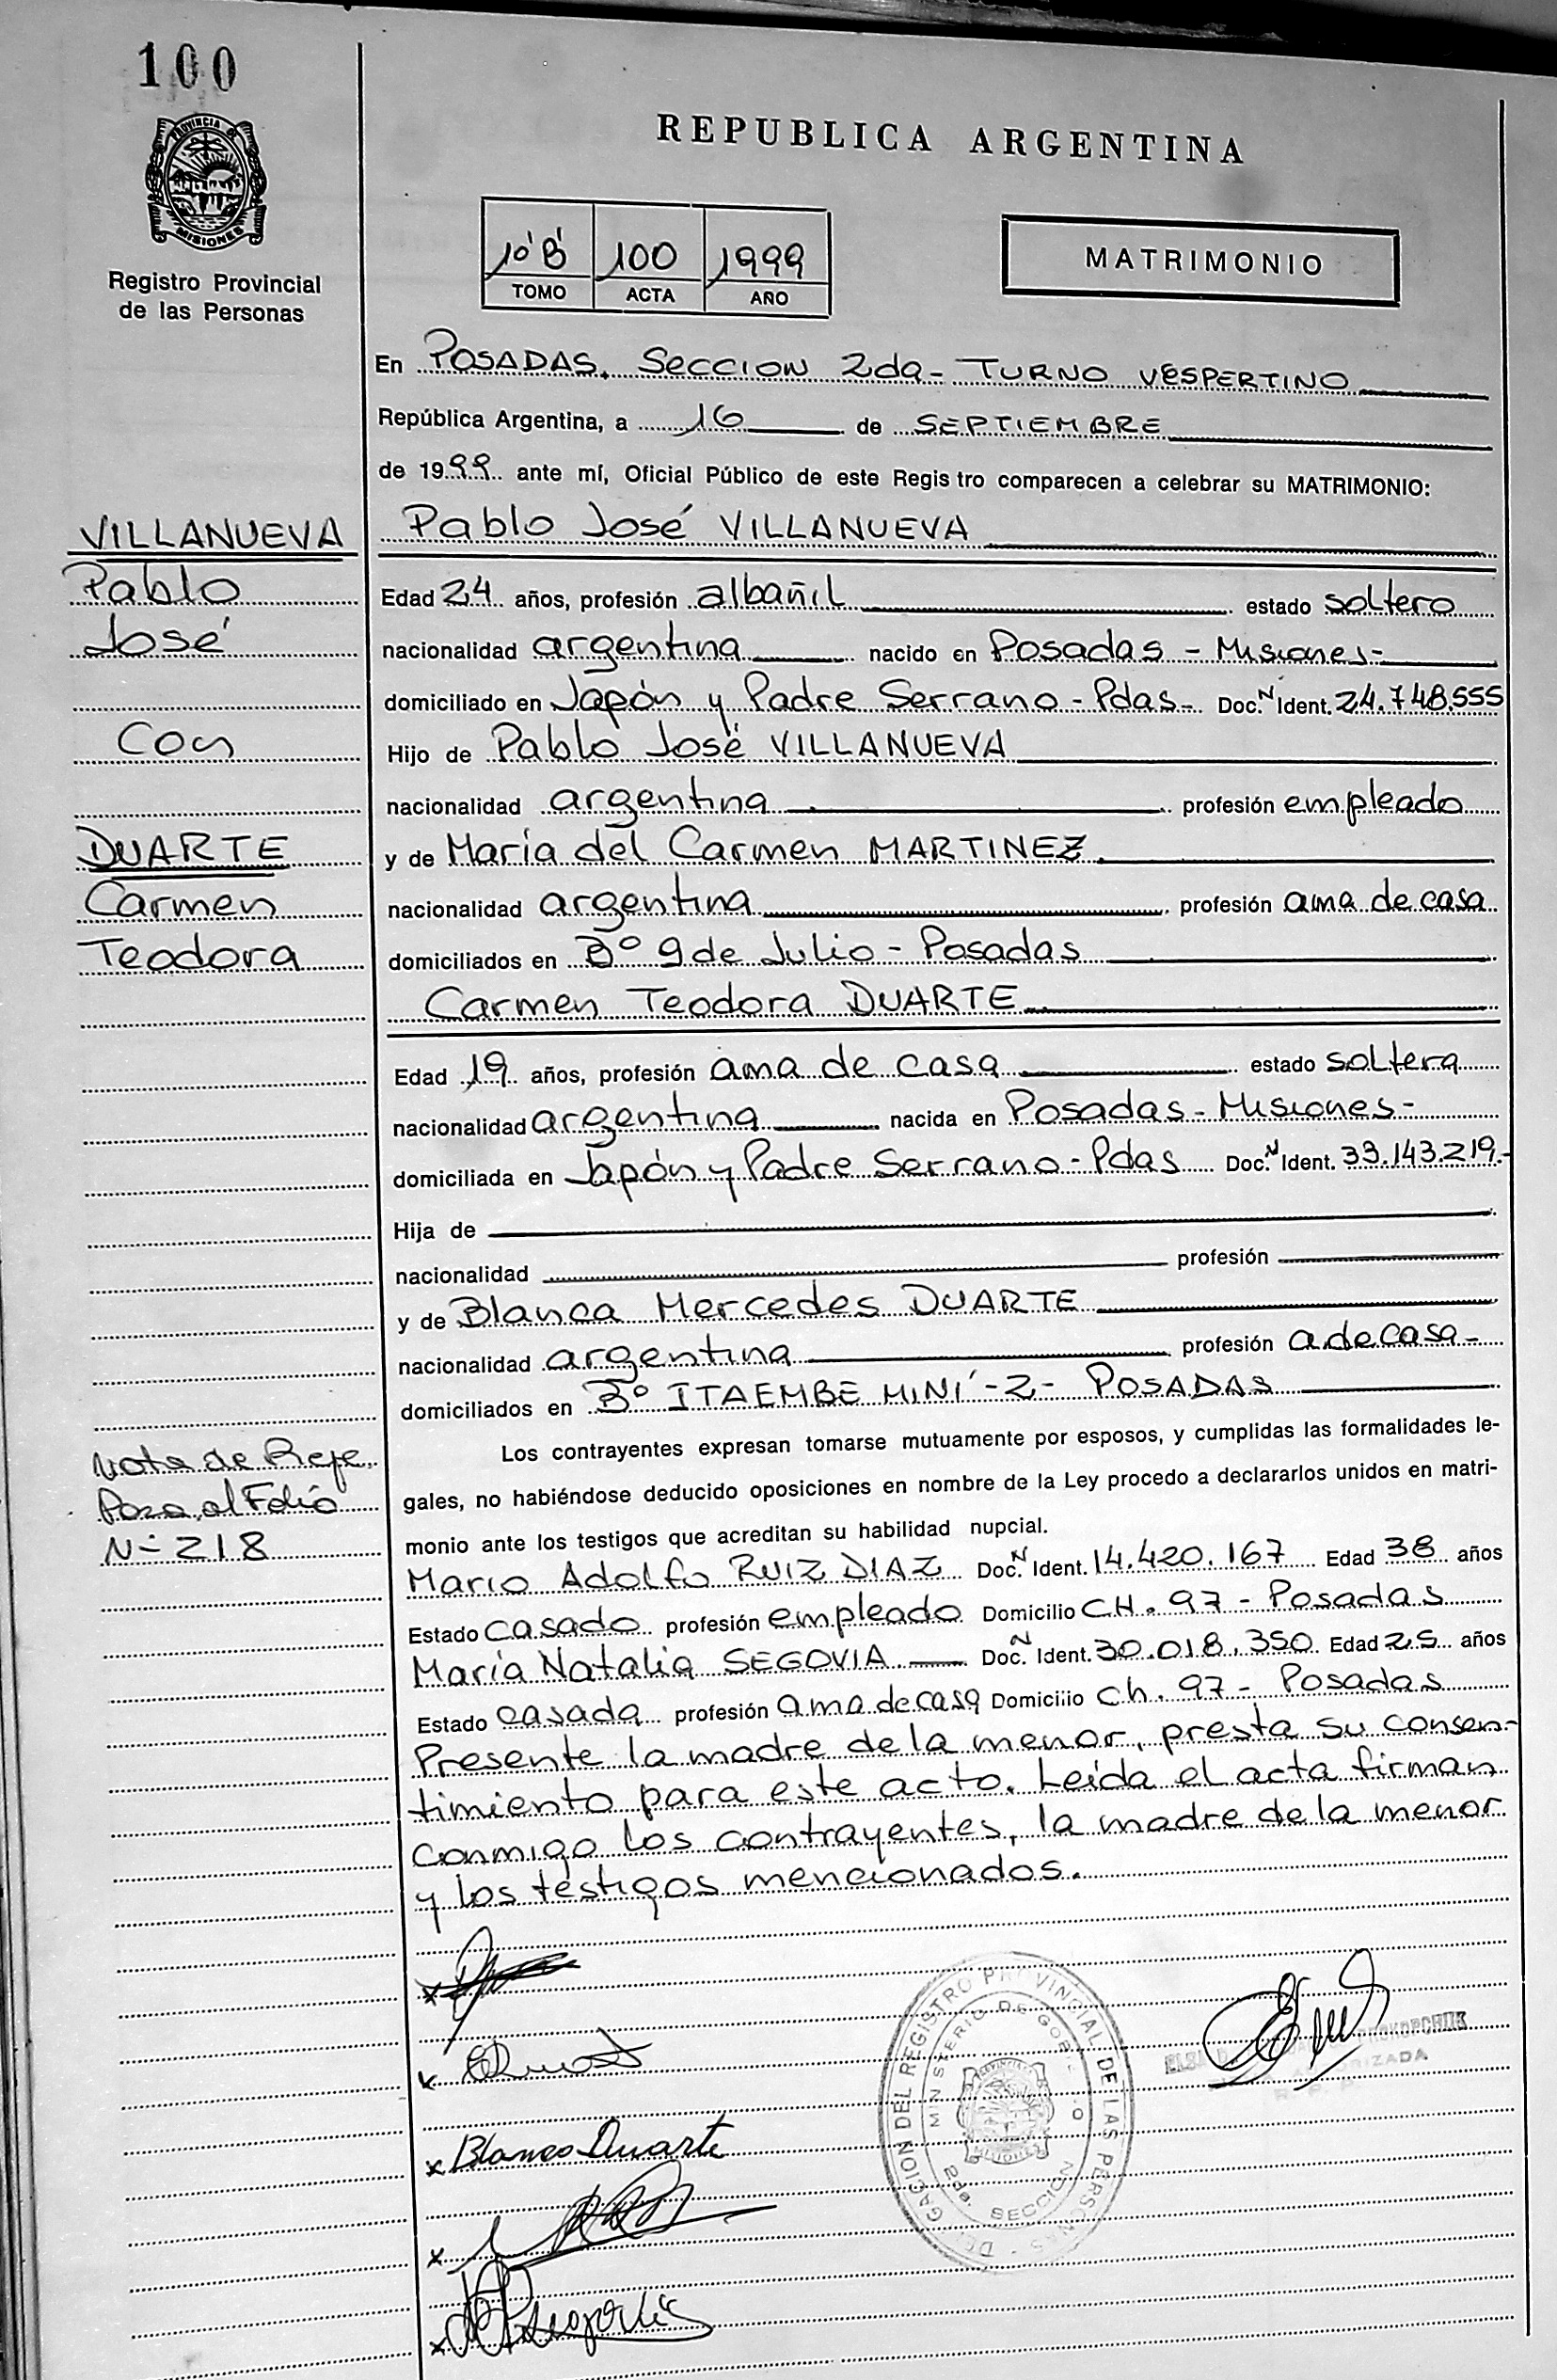 100
PROVINCIA DE
MISIONES
Registro Provincial
de las Personas
REPUBLICA ARGENTINA
10'B' 100 1999
TOMO ACTA AÑO
MATRIMONIO
En POSADAS. SECCION 2da- TURNO VESPERTINO
República Argentina, a 16 de SEPTIEMBRE
de 1999 ante mí, Oficial Público de este Regis tro comparecen a celebrar su MATRIMONIO:
VILLANUEVA
Pablo
José
Con
DUARTE
Carmen
Teodora
Pablo José VILLANUEVA
Edad 24 años, profesión albañil estado soltero
nacionalidad argentina nacido en Posadas - Misiones-
domiciliado en Japón y Padre Serrano - Pdas- Doc. N Ident. 24.748.555
Hijo de Pablo José VILLANUEVA
nacionalidad argentina profesión empleado
y de María del Carmen MARTINEZ
nacionalidad argentina profesión ama de casa
domiciliados en B° 9 de Julio - Posadas
Carmen Teodora DUARTE
Edad 19 años, profesión ama de casa estado soltera
nacionalidad argentina nacida en Posadas - Misiones-
domiciliada en Japón y Padre Serrano - Pdas Doc. N Ident. 33.143.219.-
Hija de
nacionalidad profesión
y de Blanca Mercedes DUARTE
nacionalidad argentina profesión a de casa-
domiciliados en B° ITAEMBE MINI´-2- POSADAS
Nota de Refe
al Folio
N- 218
Los contrayentes expresan tomarse mutuamente por esposos, y cumplidas las formalidades le-
gales, no habiéndose deducido oposiciones en nombre de la Ley procedo a declararlos unidos en matri-
monio ante los testigos que acreditan su habilidad nupcial.
Mario Adolfo RUIZ DIAZ Doc. N Ident. 14.420.167 Edad 38 años
Estado casado profesión empleado Domicilio CH. 97 - Posadas
María Natalia SEGOVIA Doc. N Ident. 30.018.350 Edad 25 años
Estado casada profesión ama de casa Domicilio Ch. 97 - Posadas
Presente la madre de la menor, presta su consen-
timiento para este acto. Leída el acta firman
conmigo los contrayentes, la madre de la menor
y los testigos mencionados.
x
x
x Blanca Duarte
x
x
DELEGACION DEL REGISTRO PROVINCIAL DE LAS PERSONAS
MINISTERIO DE GOBIERNO
2da. SECCION
PROKOPCHUK